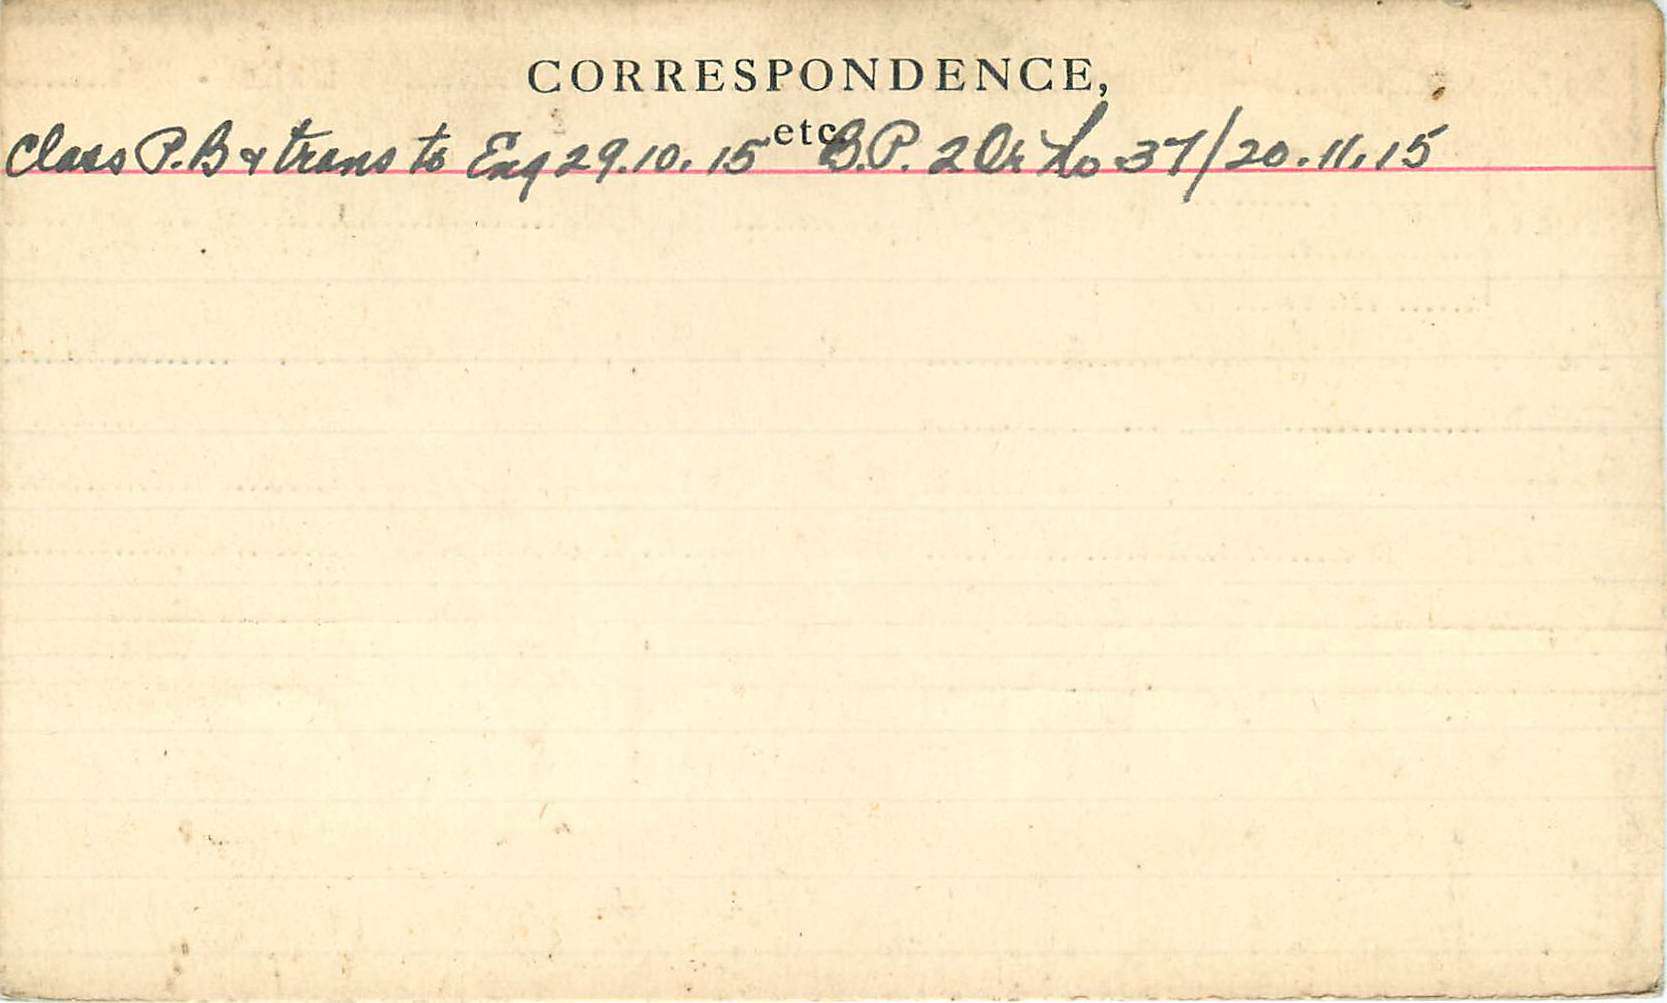 CORRESPONDENCE,
etc.
Class P.B & trans to Eng 29.10.15 B.P. 2 Or No 37/20.11.15